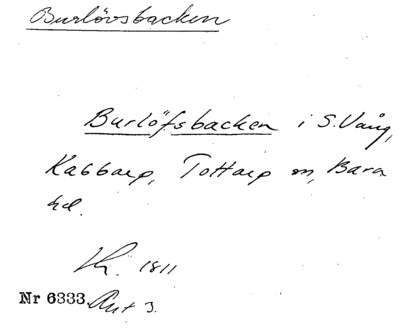 Burlövsbacken
Burlöfsbacken i S. Vång,
Kabbarp, Tottarp sn, Bara
hd.
1811
Nr 6333 Akt 3.